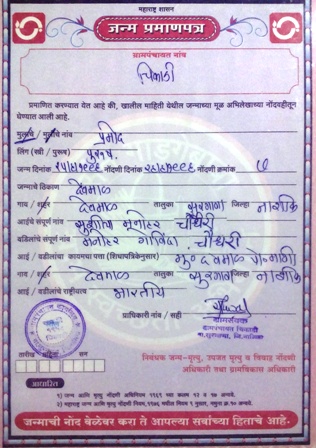 महाराष्ट्र शासन
जन्म प्रमाणपत्र
ग्रामपंचायत नांव
प्रमाणित करण्यात येत आहे की, खालील माहिती येथील जन्माच्या मूळ अभिलेखाच्या नोंदवहीतून
घेण्यात आली आहे.
मुलाचे / मुलीचे नांव प्रमोद
लिंग (स्त्री / पुरूष) पुरुष
जन्म दिनांक नोंदणी दिनांक नोंदणी क्रमांक ७
जन्माचे ठिकाण देवमाळ
गाव / शहर देवमाळ तालुका सुरगाणा जिल्हा नाशिक
आईचे संपूर्ण नांव सुशीला मनोहर चौधरी
वडिलांचे संपूर्ण नांव मनोहर गोविंदा चौधरी
आई / वडीलांचा कायमचा पत्ता (शिधापत्रिकेनुसार) मु. देवमाळ
गाव / शहर देवमाळ तालुका सुरगाणा जिल्हा नाशिक
आई / वडीलांचे राष्ट्रीयत्व भारतीय
प्राधिकारी नांव / सही
ग्रामसेवक
तारीख महिना सन
निबंधक जन्म-मृत्यु, उपजत मृत्यु व विवाह नोंदणी
अधिकारी तथा ग्रामविकास अधिकारी
आधारित
१) जन्म आणि मृत्यु नोंदणी अधिनियम १९६९
जन्माची नोंद वेळेवर करा ते आपल्या सर्वांच्या हिताचे आहे.